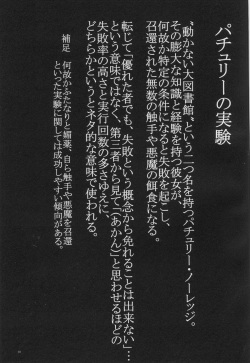 パチュリーの実験
〝動かない大図書館〟という二つ名を持つパチュリー・ノーレッジ。
その膨大な知識と経験を持つ彼女が、
何故か特定の条件になると失敗を起こし、
召還された無数の触手や悪魔の餌食になる。
転じて「優れた者でも、失敗という概念から免れることは出来ない」…
という意味ではなく、第三者から見て(あかん)と思わせるほどの
失敗率の高さと実行回数の多さゆえに、
どちらかというとネタ的な意味で使われる。
補足 何故かふたなりと媚薬、自ら触手や悪魔を召還
といった実験に関しては成功しやすい傾向がある。